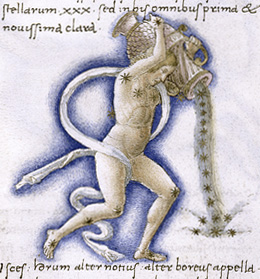 stellarum · xxx · sed in his omnibus prima &
nouissima clara ·
isces : horum alter notius , alter boreus appella